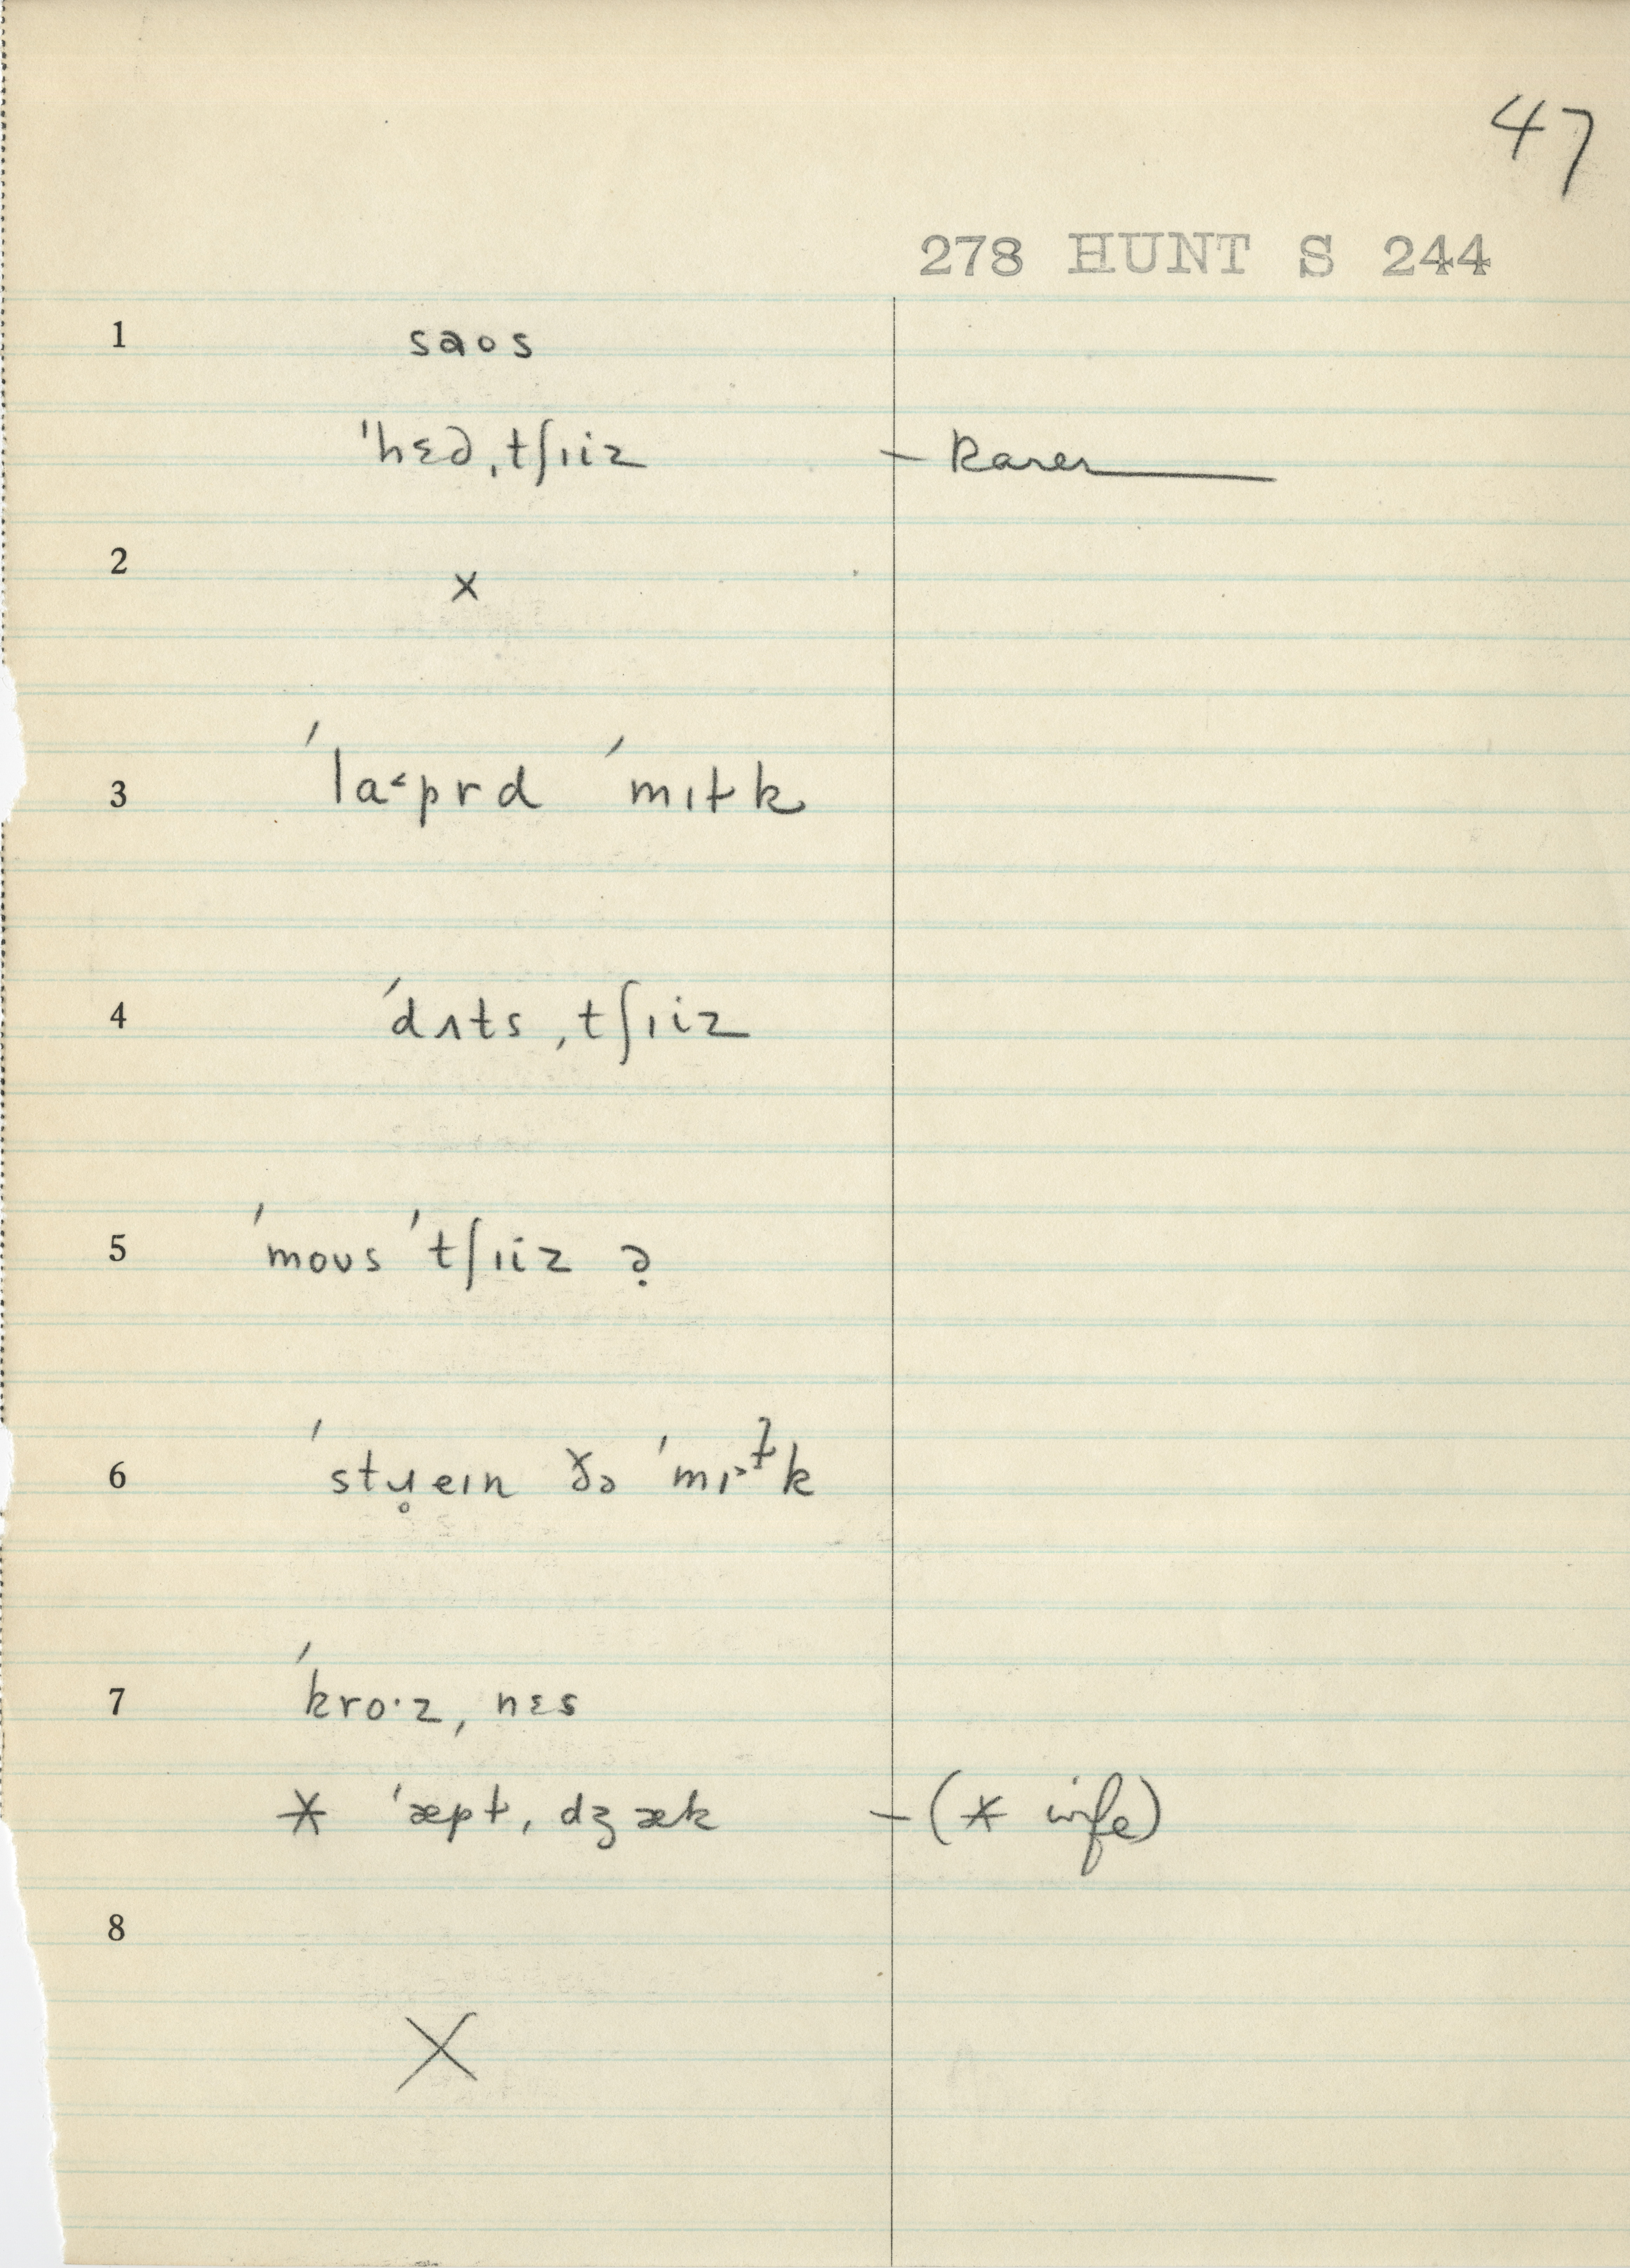 47
278 HUNT S 244
1 saos
ˈhɛd ˌtʃɪiz – Rarer
2 x
3 ˈla˂prd ˈmɪɫk
4 ˈdʌts ˌtʃɪiz
5 ˈmoʊs ˈtʃɪiz ə̣
6 ˈstɹ̥eɪn ðə ˈmɪ˃ɫk
7 ˈkro·z ˌnɛs
* ˈæpɫ ˌdʒæk – (* wife)
8
X